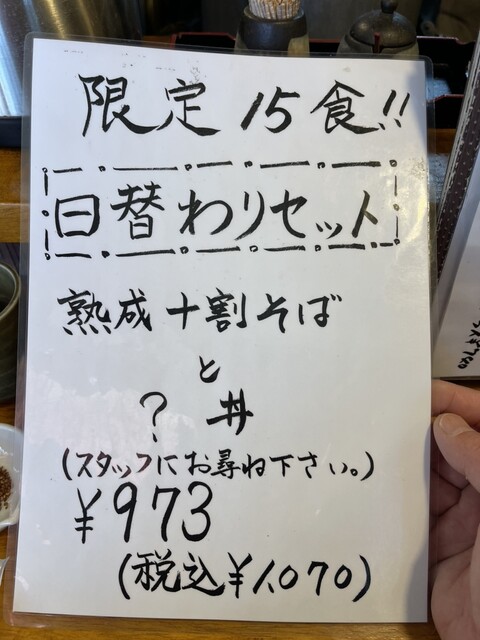 限定15食!!
日替わりセット
熟成十割そば
と
? 丼
(スタッフにお尋ね下さい。)
¥973
(税込¥1,070)